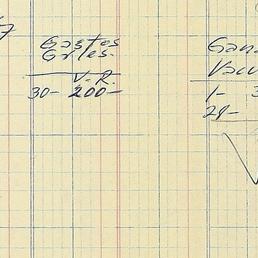 Gastos
Grles.
V. R.
30- 200-
Gan
Vacu
1- 3
29-